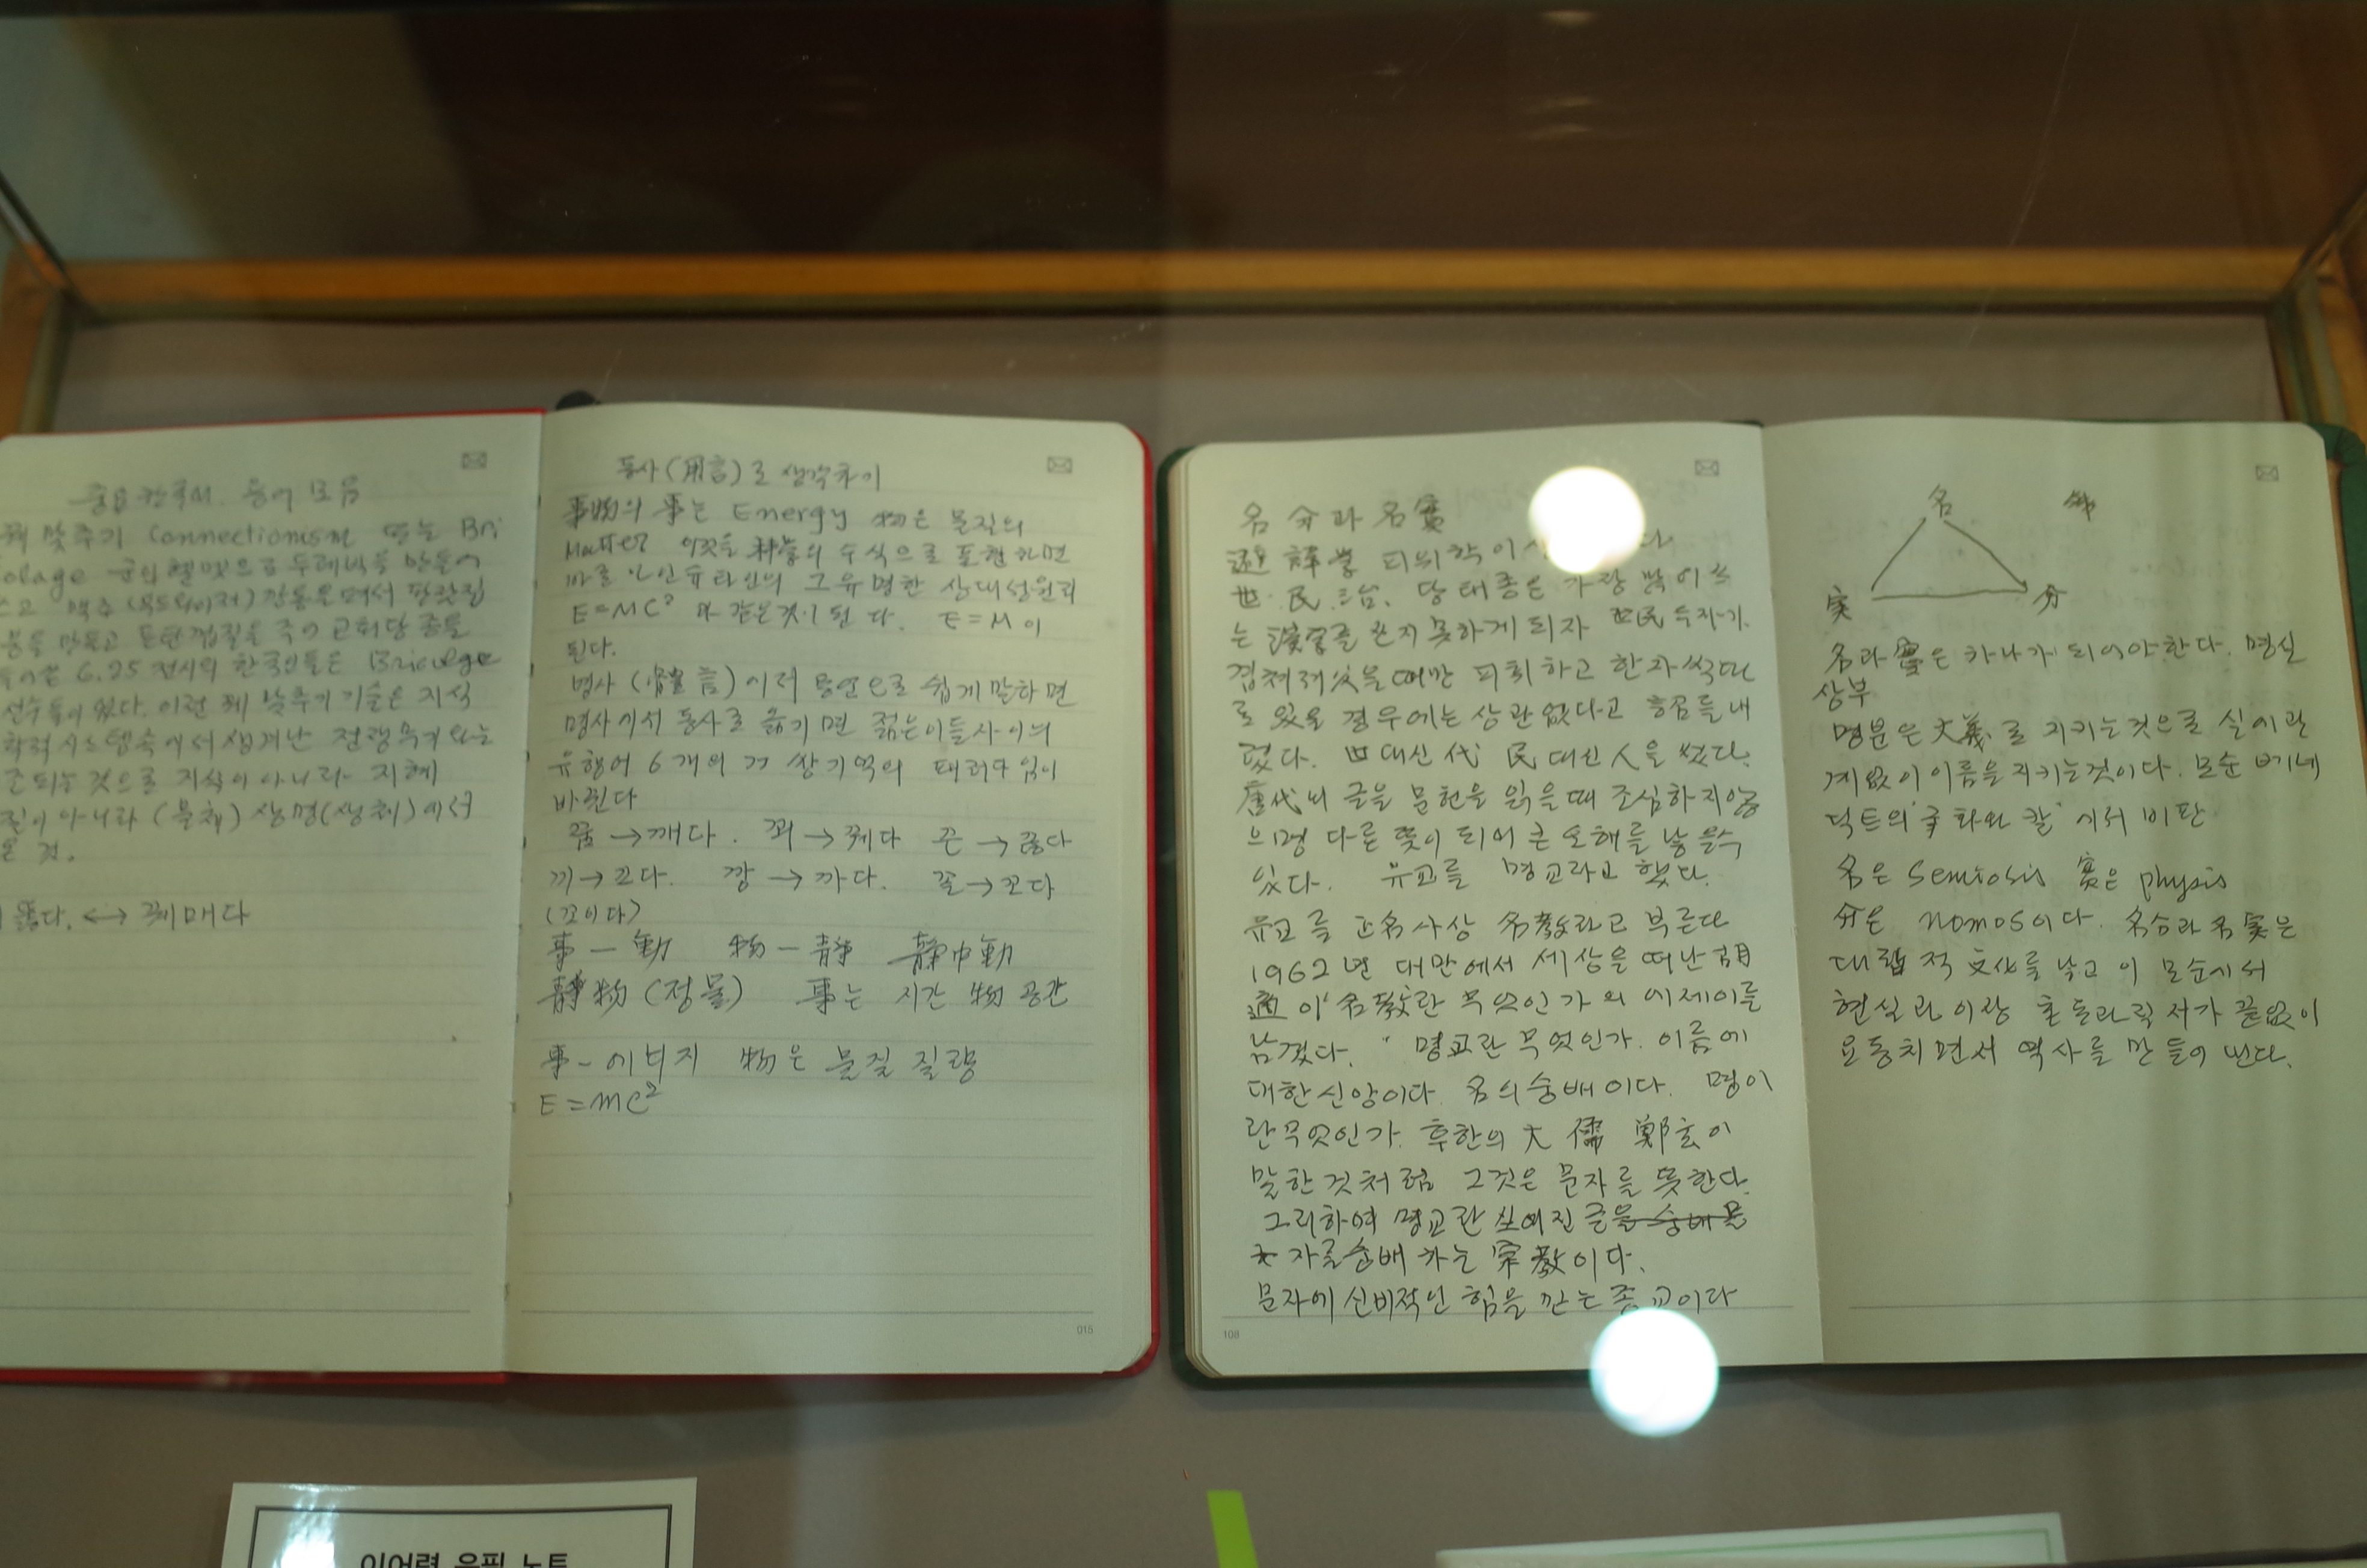 꿰 맞추기 Connectionism 또는 Bri
6.25 전시의 한국인들은 Bricolage
선수들이 었다. 이런 꿰 맞추기 기술은 지식
학적 시스템속에서 생겨난 전쟁무기 와는
것으로 지식이 아니라 지혜
아니라 (물체) 생명(생체)에서
온 것.
뚫다. ↔ 꿰매다
동사(用言)로 생각하기
事物의 事는 Energy 物은 물질의
Matter 이것을 科學의 수식으로 표현 하면
바로 아인슈타인의 그 유명한 상대성원리
E=MC² 과 같은것이 된다. E=M이
된다.
명사 (體言)에서 용언으로 쉽게 말하면
명사에서 동사로 옮기면 젊은이들사이의
유행어 6개의 저 쌍기역의 패러다임이
바뀐다
꿈→깨다. 꾀→꿰다 끈→끊다
끼→끄다. 깡→까다. 꼴→꼬다
(꼬이다)
事—動 物—静 静中動
静物(정물) 事는 시간 物 공간
事-에너지 物은 물질 질량
E=mc²
015
名分과 名實
避諱學 피휘학이
世民 당태종은 가장 많이 쓰
는 漢字를 쓰지 못하게 되자 世民 두자가
겹쳐져 있을 때만 피휘하고 한자씩 따
로 있을 경우에는 상관없다고 허문을 내
렸다. 世대신 代 民대신 人을 썼다.
唐代의 글을 문헌을 읽을때 조심하지않
으면 다른 뜻이 되어 큰 오해를 낳을수
있다. 유교를 명교라고 했다.
유교를 正名사상 名教라고 부른다
1962년 대만에서 세상을 떠난 胡
適이 '名教란 무엇인가'의 에세이를
남겼다. "명교란 무엇인가. 이름에
대한 신앙이다. 名의 숭배이다. 명이
란 무엇인가. 후한의 大儒 鄭玄이
말한 것처럼 그것은 문자를 뜻한다.
그리하여 명교란 쓰여진 글을 숭배 문
자를 숭배 하는 宗教이다.
문자에 신비적인 힘을 믿는 종교이다
108
名
実 分
名과 實은 하나가 되어야 한다. 명실
상부
명분은 大義로 지키는것으로 실에 관
계없이 이름을 지키는것이다. 모순 베네
딕트의 '국화와 칼'에서 비판
名은 Semiosis 実은 physis
分은 nomos이다. 名分과 名実은
대립적 文化를 낳고 이 모순에서
현실과 이상 충돌과 격차가 끝없이
요동치면서 역사를 만들어 낸다.
이어령 육필 노트